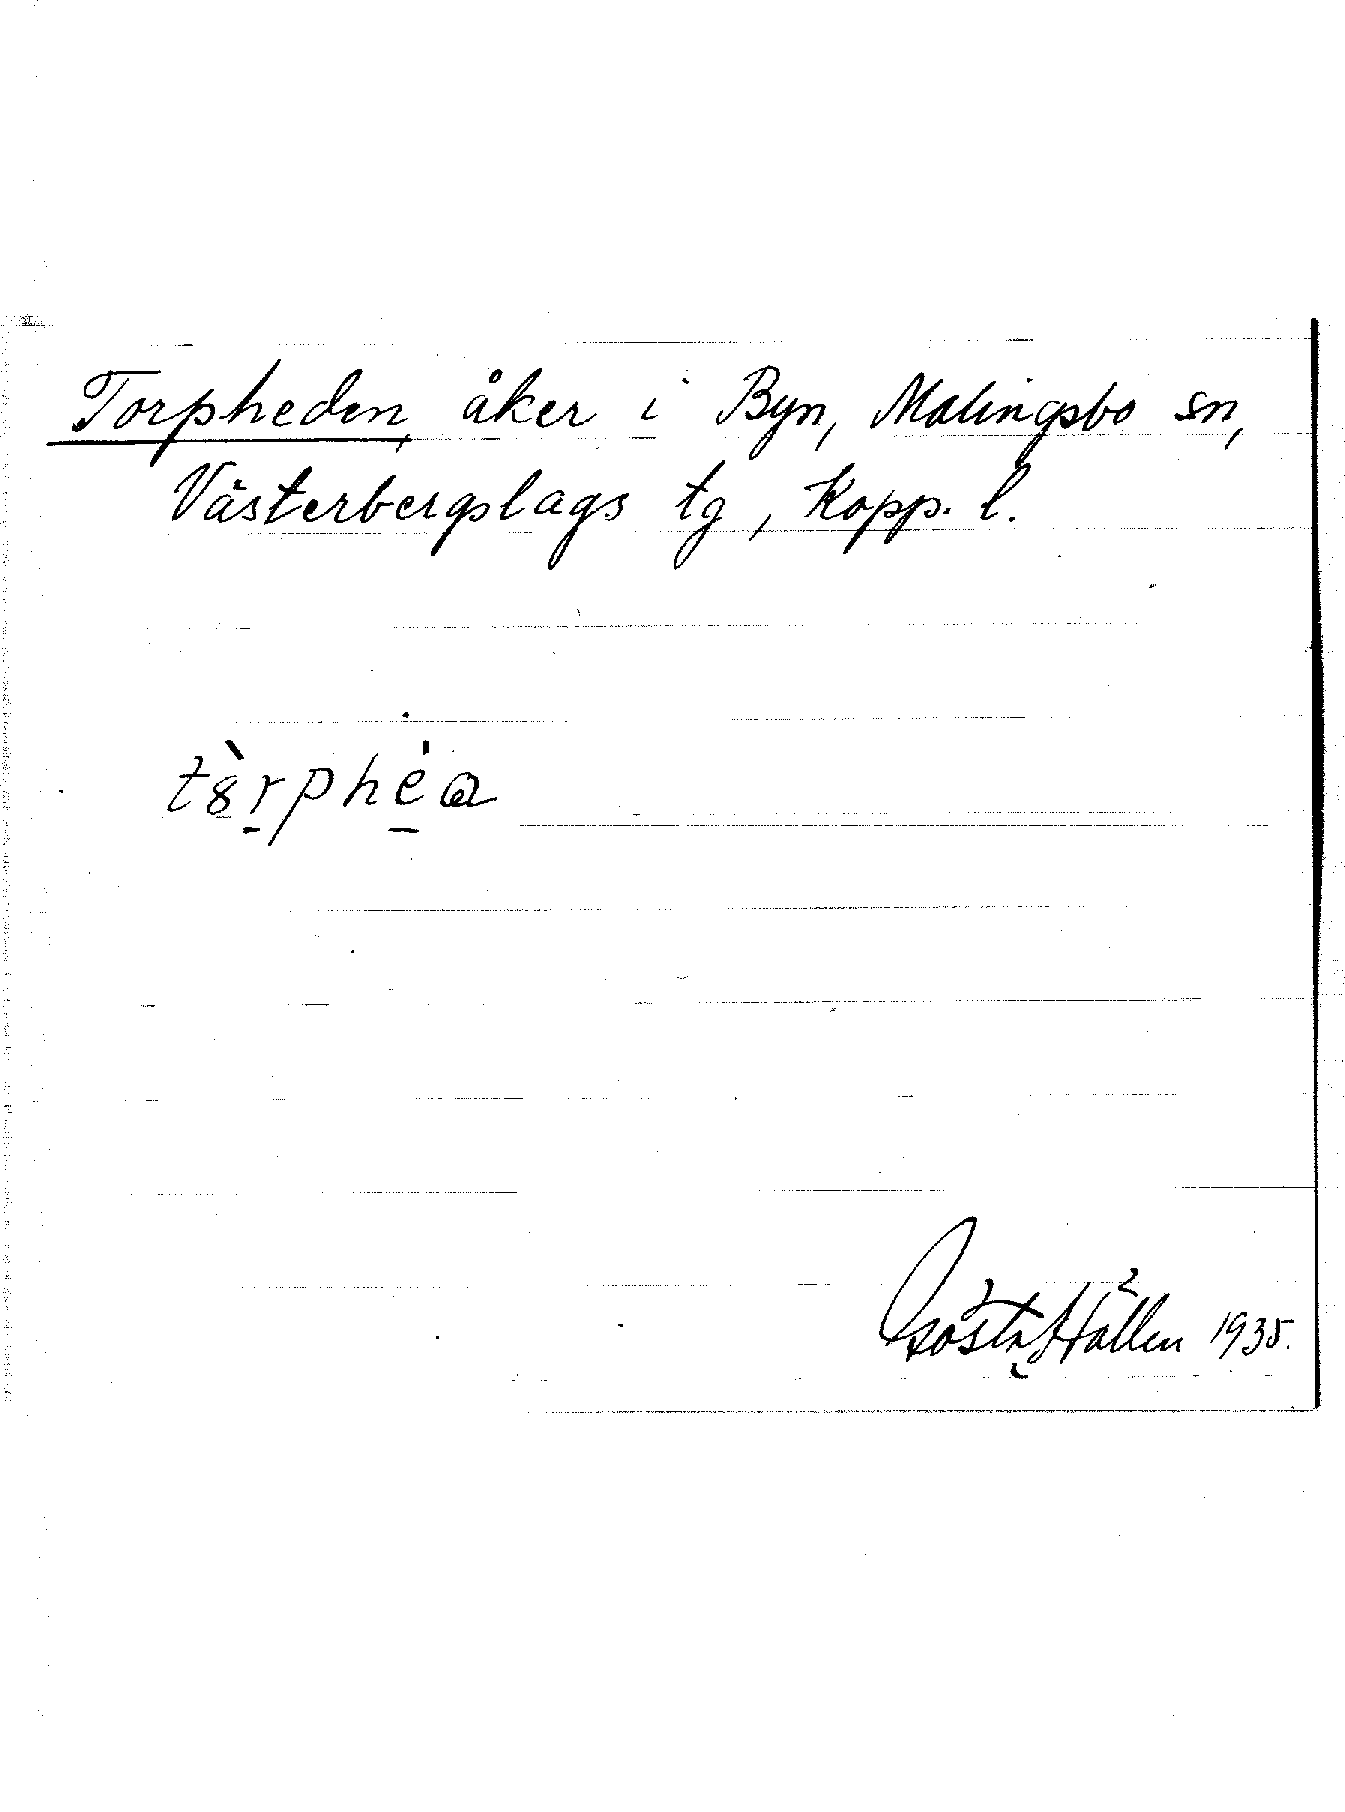 Torpheden, åker i Byn, Malingsbo sn,
Västerbergslags tg, Kopp. l.
tȣ̀rphéa
Gösta Hållen 1935.